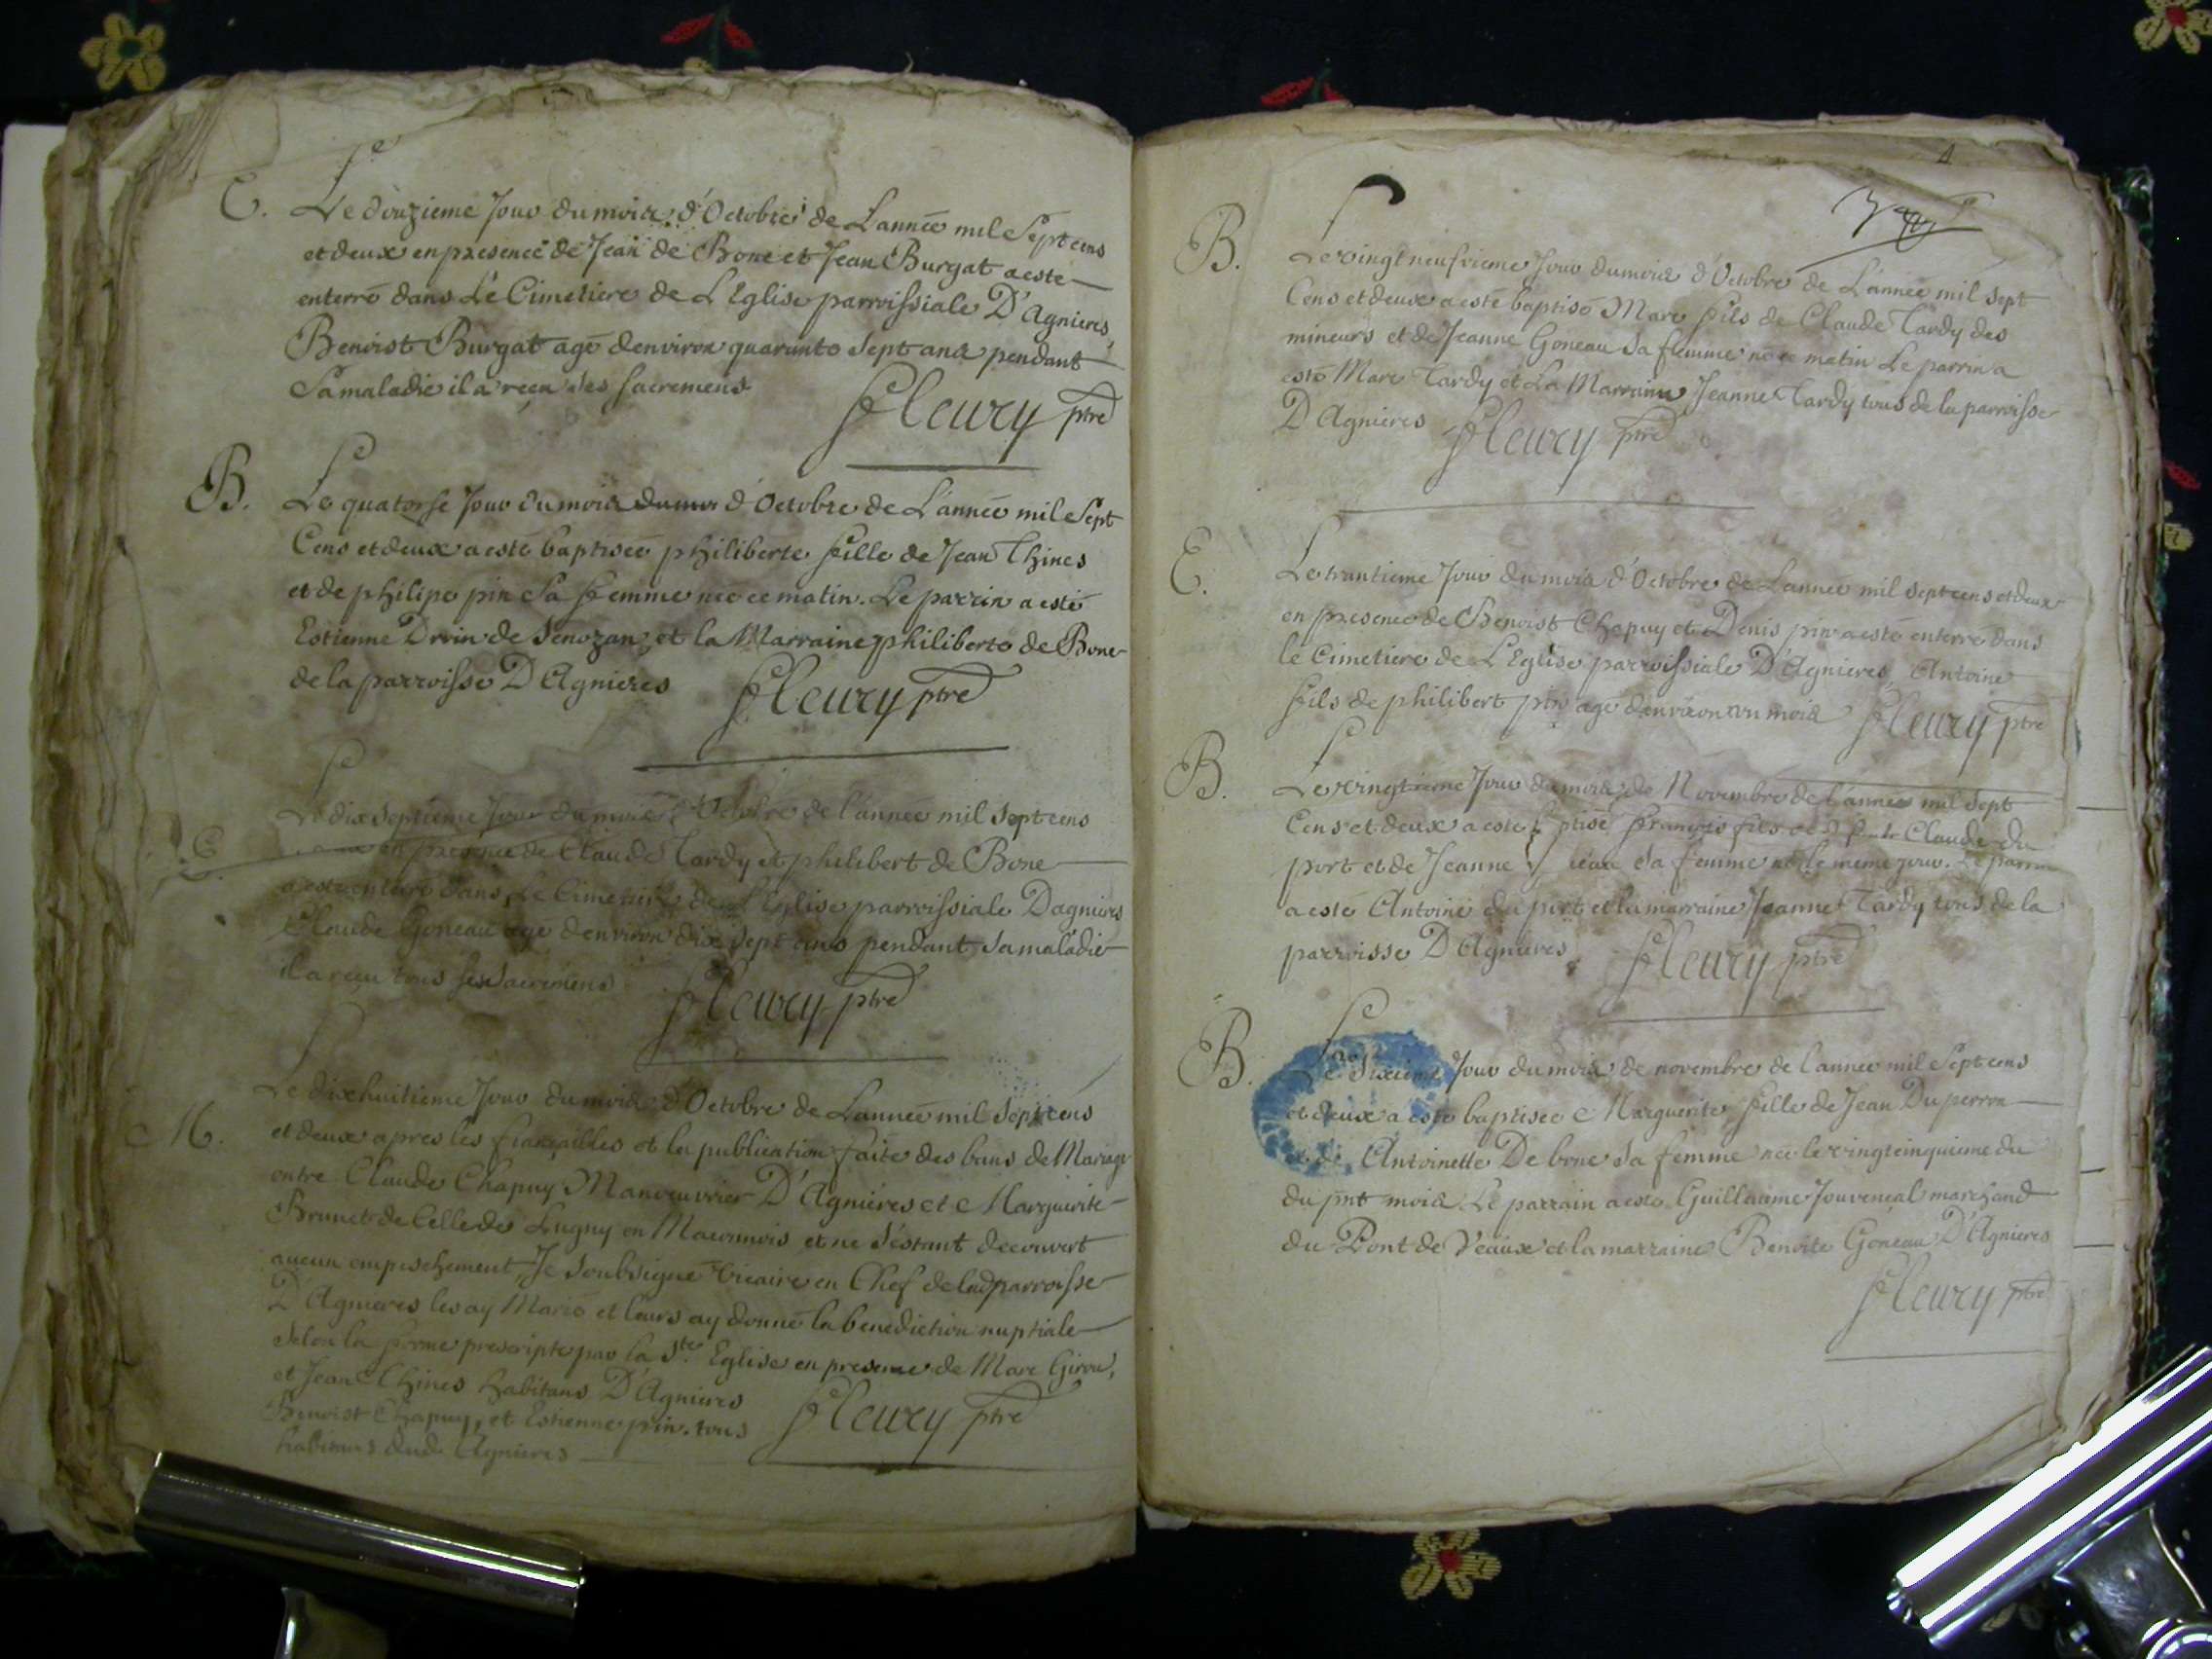 E. Le douzieme Jour du mois d'Octobre de L'année mil Sept cens
et deux en presence de Jean de Bone et Jean Burgat a esté
enterré dans Le Cimetiere de L'Eglise parroissiale D'Agnieres,
Benoist Burgat agé denviron quarante Sept ans pendant
Sa maladie il a reçu les Sacremens
Fleury ptre
B. Le quatorse Jour du mois d'Octobre de L'année mil Sept
Cens et deux a esté baptiseé philiberte fille de Jean Thines
et de philipe pin Sa femme neé ce matin. Le parrin a esté
Estienne Drvin de Senozan, et la Marraine philiberte de Bone
de la parroisse D'Agnieres
Fleury ptre
E. Le dix septieme Jour du mois d'Octobre de l'année mil Sept cens
en presence de Claude Tardy et philibert de Bone
a esté enterré dans Le Cimetiere de L'Eglise parroissiale Dagnieres
Claude Goneau agé denviron dix Sept ans pendant Sa maladie
il a reçu tous les Sacremens
Fleury ptre
M. Le dixhuitieme Jour du mois d'Octobre de L'anneé mil Sept cens
et deux apres les fiançailles et la publication faite des bans de Mariage
entre Claude Chapuy Manouvrier D'Agnieres et Marguerite
Brunet de Celle de Lugny en Maconnois et ne s'estant decouvert
aucun empeschement Je Soubsigné Vicaire en Chef de lad parroisse
D'Agnieres les ay Marié et leurs ay donné la benediction nuptiale
Selon la forme prescripte par la Ste Eglise en presence de Marc Girou,
et Jean Thines habitans D'Agnieres
Benoist Chapuy, et Estienne pin. tous
habitans dud. Agnieres
Fleury ptre
4
B. Le vingt neufvieme Jour du mois d'Octobre de L'année mil Sept
Cens et deux a esté baptisé Marc fils de Claude Tardy des
mineurs et de Jeanne Goneau Sa femme né ce matin Le parrin a
esté Marc Tardy et La Marraine Jeanne Tardy tous de la parroisse
D'Agnieres
Fleury ptre
E. Le trantieme Jour du mois d'Octobre de L'année mil Sept cens et deux
en presence de Benoist Chapuy et Denis pin a esté enterré dans
le Cimetiere de L'Eglise parroissiale D'Agnieres, Antoine
fils de philibert pin agé denviron un mois
Fleury ptre
B. Le vingtieme Jour du mois de Novembre de l'année mil Sept
Cens et deux a esté baptisé François fils de Claude du
port et de Jeanne Sa femme né le meme jour. Le parrin
a esté Antoine du port et la marraine Jeanne Tardy tous de la
parroisse D'Agnieres
Fleury ptre
B. Le Sixieme Jour du mois de novembre de l'année mil Sept cens
et deux a esté baptisee Marguerite fille de Jean Duperron
et de Antoinette De bone Sa femme neé le vingtcinquieme du
du pnt mois Le parrain a esté Guillaume Jouvencal marchand
du Pont de Veaux et la marraine Benoite Goneau D'Agnieres
Fleury ptre